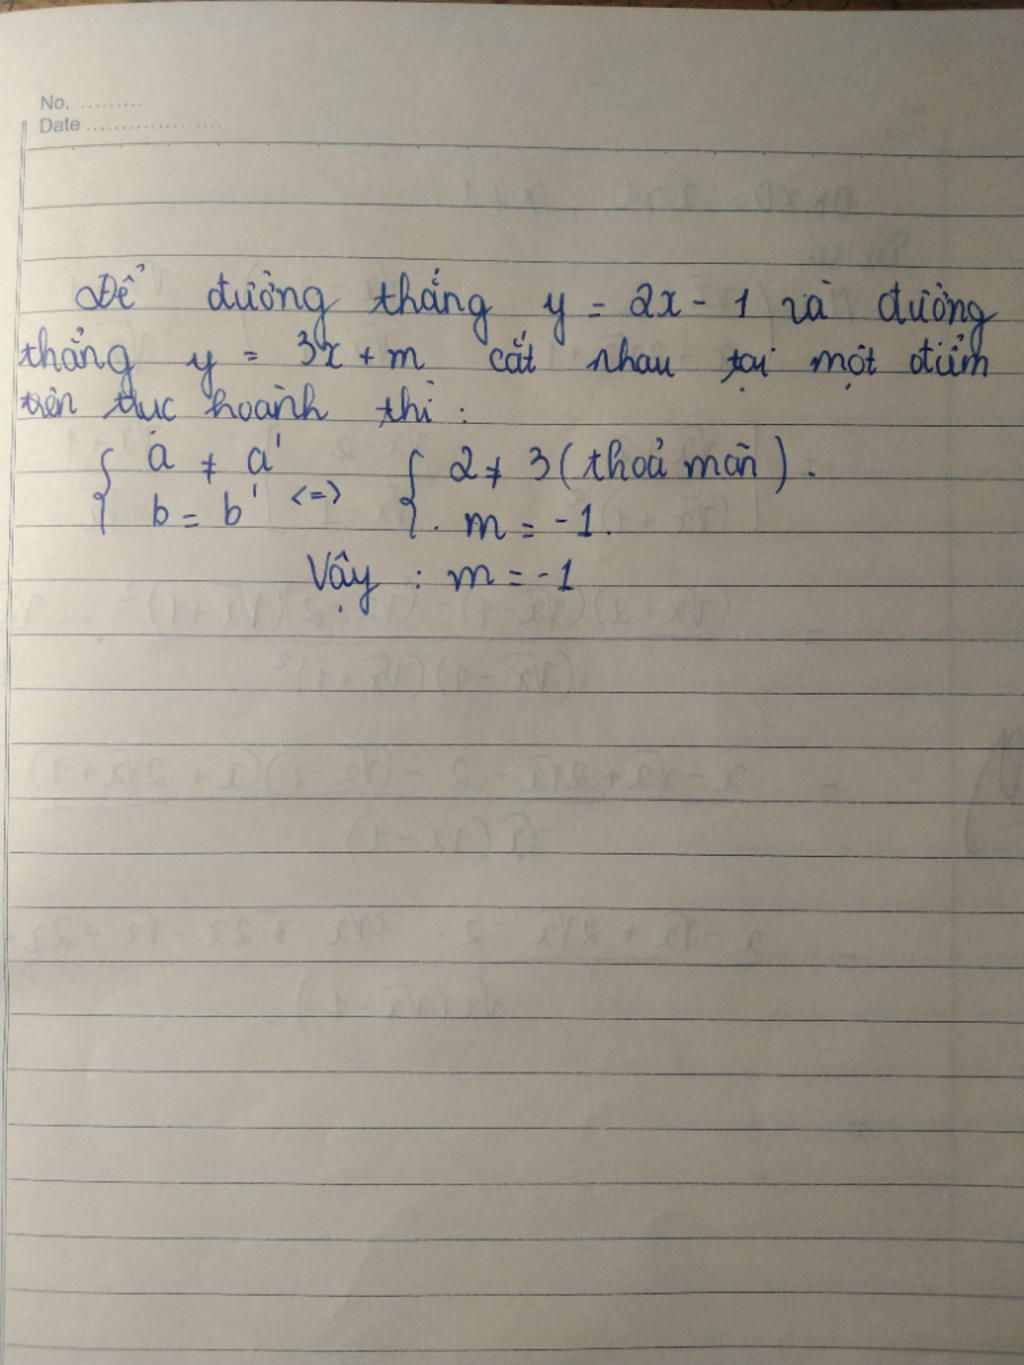 No. .........
Date ...................
Để đường thẳng y = 2x - 1 và đường
thẳng y = 3x + m cắt nhau tại một điểm
trên trục hoành thì :
{ a ≠ a' <=> { 2 ≠ 3 (thoả mãn) .
b = b' . m = -1.
Vậy : m = -1